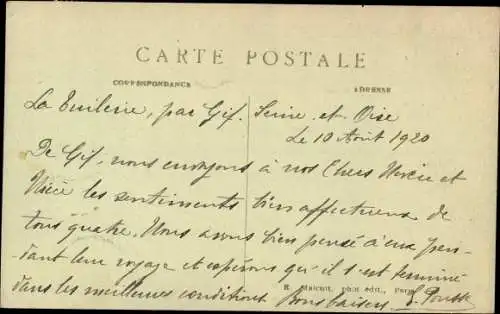 CARTE POSTALE
CORRESPONDANCE
ADRESSE
La Tuilerie, par Gif. Seine-et-Oise
Le 10 Août 1920
De Gif, nous envoyons à nos Chers Neveu et
Nièce les sentiments bien affectueux de
tous quatre. Nous avons bien pensé à eux pen-
dant leur voyage et espérons qu'il s'est terminé
dans les meilleures conditions Bons baisers
phot édit.,